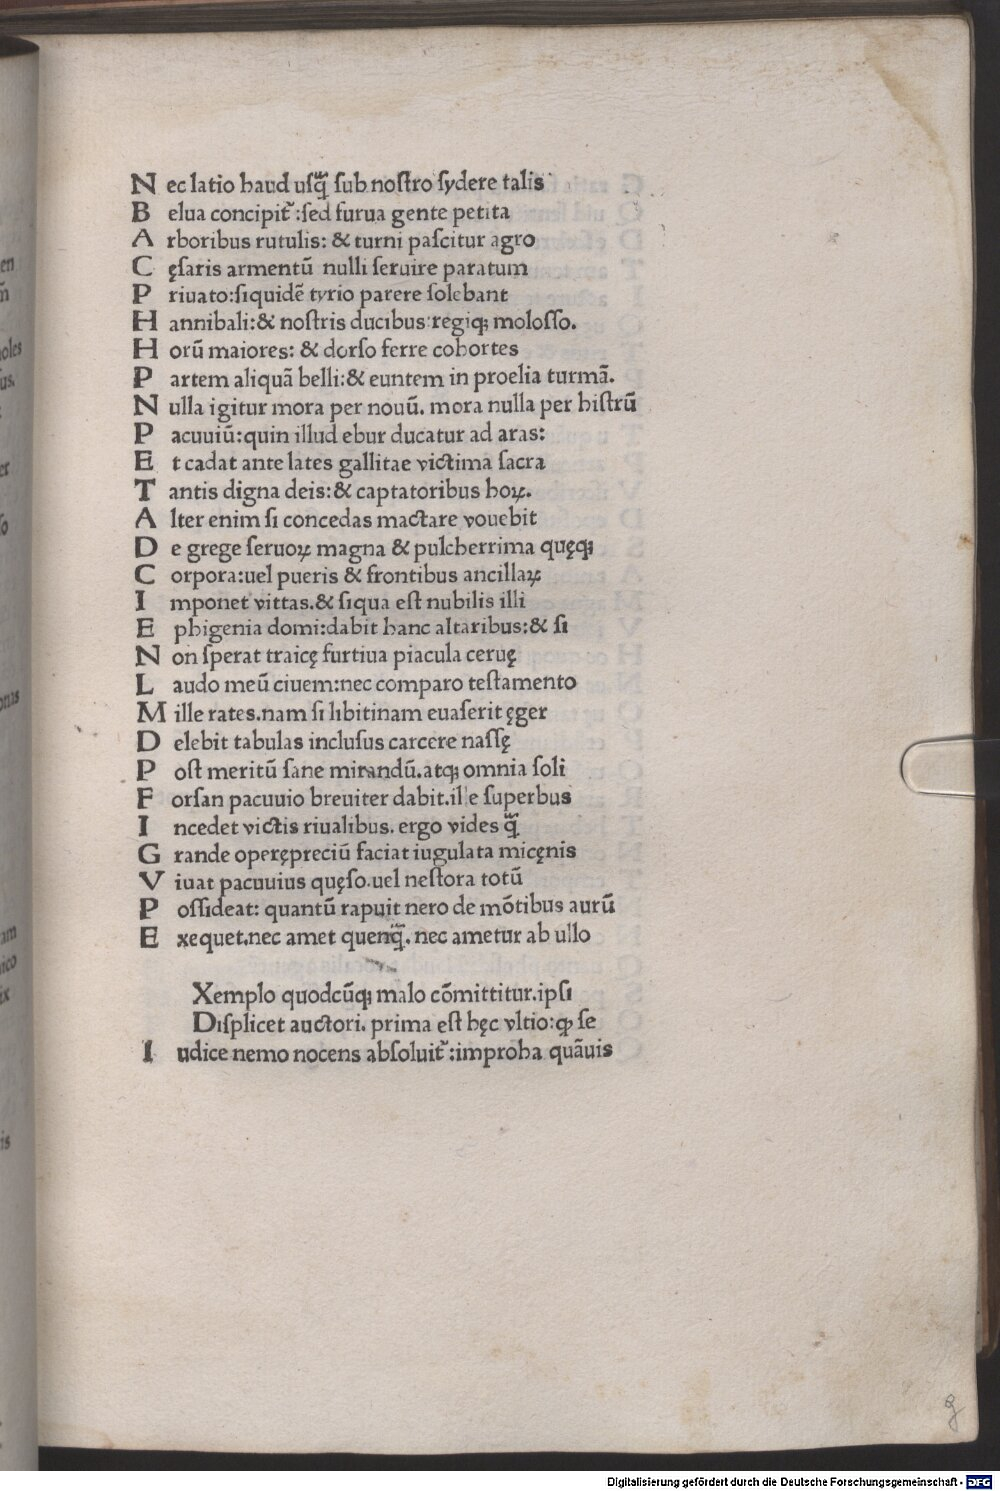 N ec latio haud uſq̃ ſub noſtro ſydere talis
B elua concipit᷑:ſed furua gente petita
A rboribus rutulis: & turni paſcitur agro
C ęſaris armentũ nulli ſeruire paratum
P riuato:ſiquidẽ tyrio parere ſolebant
H annibali:& noſtris ducibus:regiq; moloſſo.
H orũ maiores: & dorſo ferre cohortes
P artem aliquã belli:& euntem in proelia turmã.
N ulla igitur mora per nouũ. mora nulla per hiſtrũ
P acuuiũ:quin illud ebur ducatur ad aras:
E t cadat ante lates gallitae victima ſacra
T antis digna deis:& captatoribus hoꝝ.
A lter enim ſi concedas mactare vouebit
D e grege ſeruoꝝ magna & pulcherrima quęq;
C orpora:uel pueris & frontibus ancillaꝝ
I mponet vittas.& ſiqua eſt nubilis illi
E phigenia domi:dabit hanc altaribus:& ſi
N on ſperat traicę furtiua piacula ceruę
L audo meũ ciuem:nec comparo teſtamento
M ille rates.nam ſi libitinam euaſerit ęger
D elebit tabulas incluſus carcere naſſę
P oſt meritũ ſane mirandũ.atq; omnia ſoli
F orſan pacuuio breuiter dabit.ille ſuperbus
I ncedet victis riualibus. ergo vides q̃
G rande operępreciũ faciat iugulata micęnis
V iuat pacuuius quęſo.uel neſtora totũ
P oſſideat: quantũ rapuit nero de mõtibus aurũ
E xequet.nec amet quenq̃. nec ametur ab ullo
Xemplo quodcũq; malo cõmittitur.ipſi
Diſplicet auctori. prima eſt hęc vltio:ꝙ ſe
I udice nemo nocens abſoluit᷑:improba quãuis
g
Digitalisierung gefördert durch die Deutsche Forschungsgemeinschaft - DFG